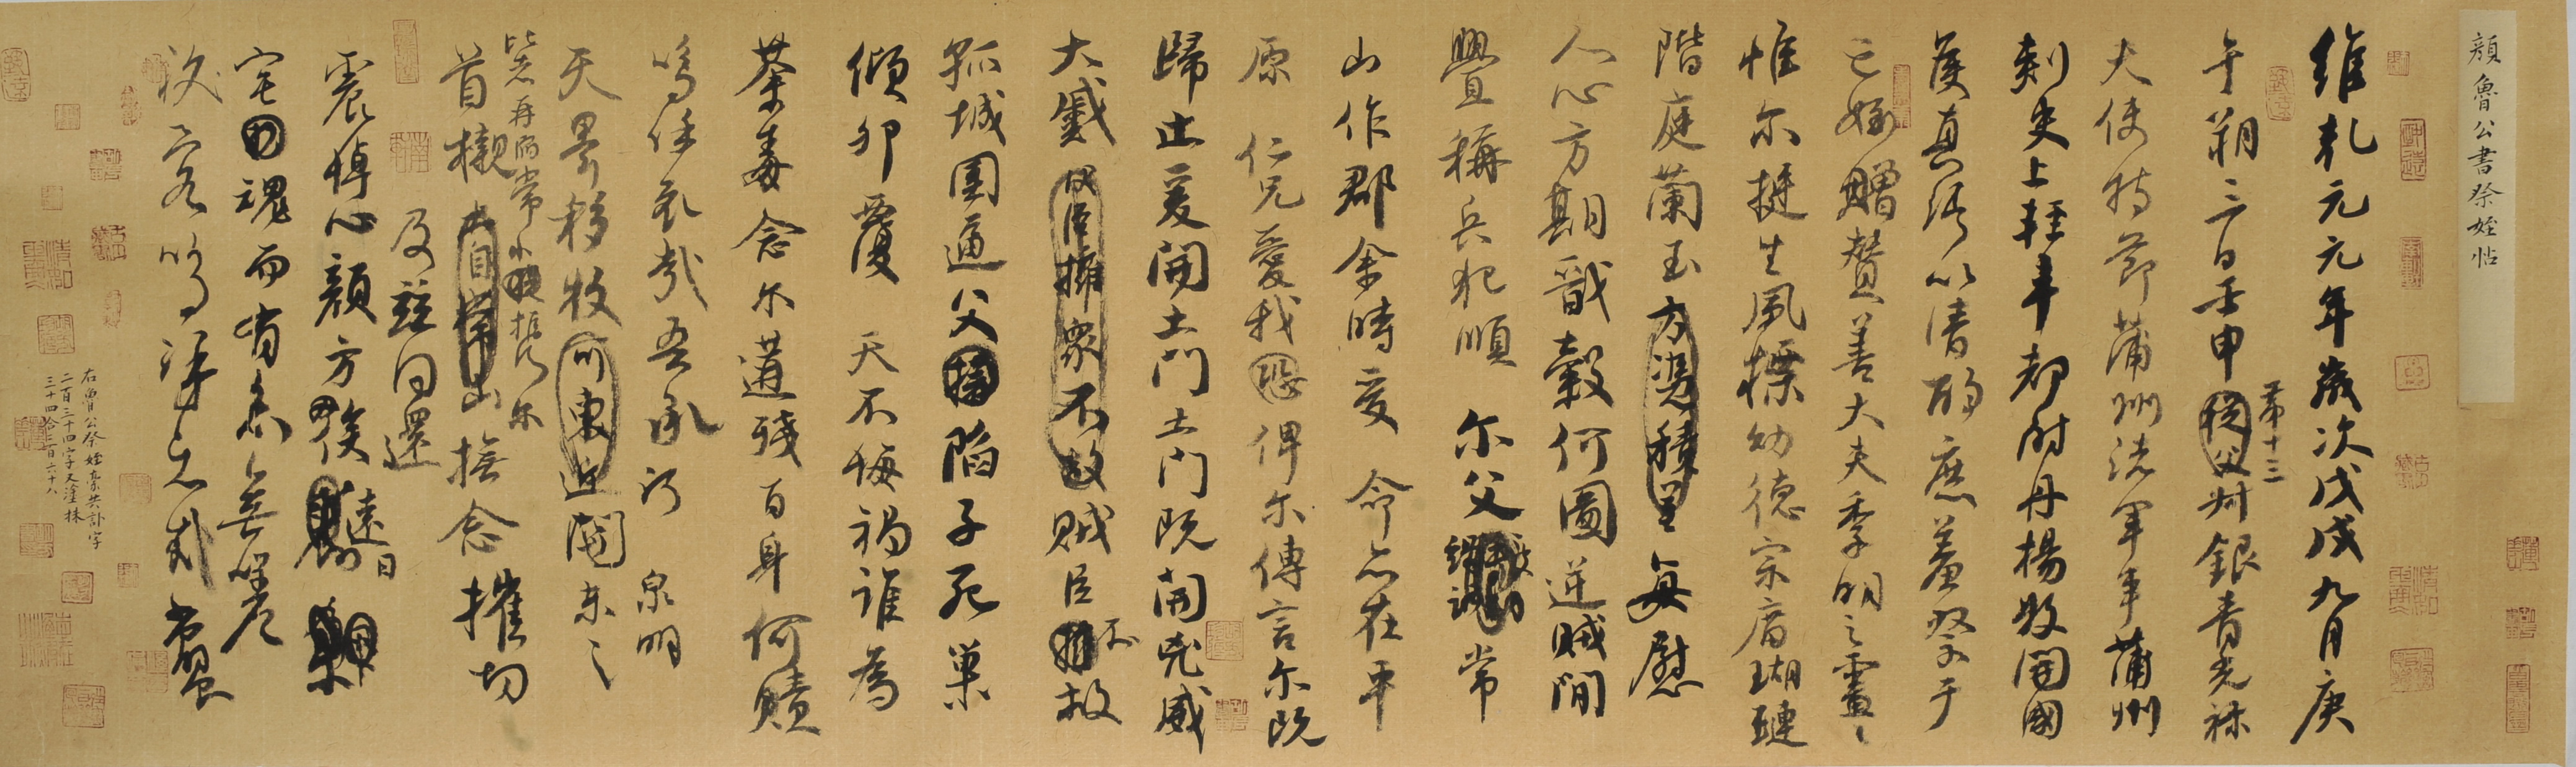 顏魯公書祭姪帖
維乾元元年歲次戊戌九月庚
午朔三日壬申第十三從父叔銀青光祿
大使持節蒲州諸軍事蒲州
刺史上輕車都尉丹楊縣開國
侯真卿以清酌庶羞祭于
亡姪贈贊善大夫季明之靈
惟尔挺生夙標幼德宗廟瑚璉
階庭蘭玉方憑積善每慰
人心方期戩穀何圖逆賊間
釁稱兵犯順尔父竭誠常
山作郡余時受命亦在平
原仁兄愛我恐俾尔傳言尔既
歸止爰開土門土門既開兇威
大蹙賊臣擁衆不救賊臣不救
孤城圍逼父擒陷子死巢
傾卵覆天不悔禍誰為
荼毒念尔遘殘百身何贖
嗚呼哀哉吾承 泉明
天澤移牧河東近關
比者再陷常山攜尔
首櫬亦自常山撫念摧切
及茲同還
震悼心顏方俟遠日
宅魂而有知無嗟
久客嗚呼哀哉尚饗
右魯公祭姪藁共計字
二百三十四字又塗抹
三十四合二百六十八